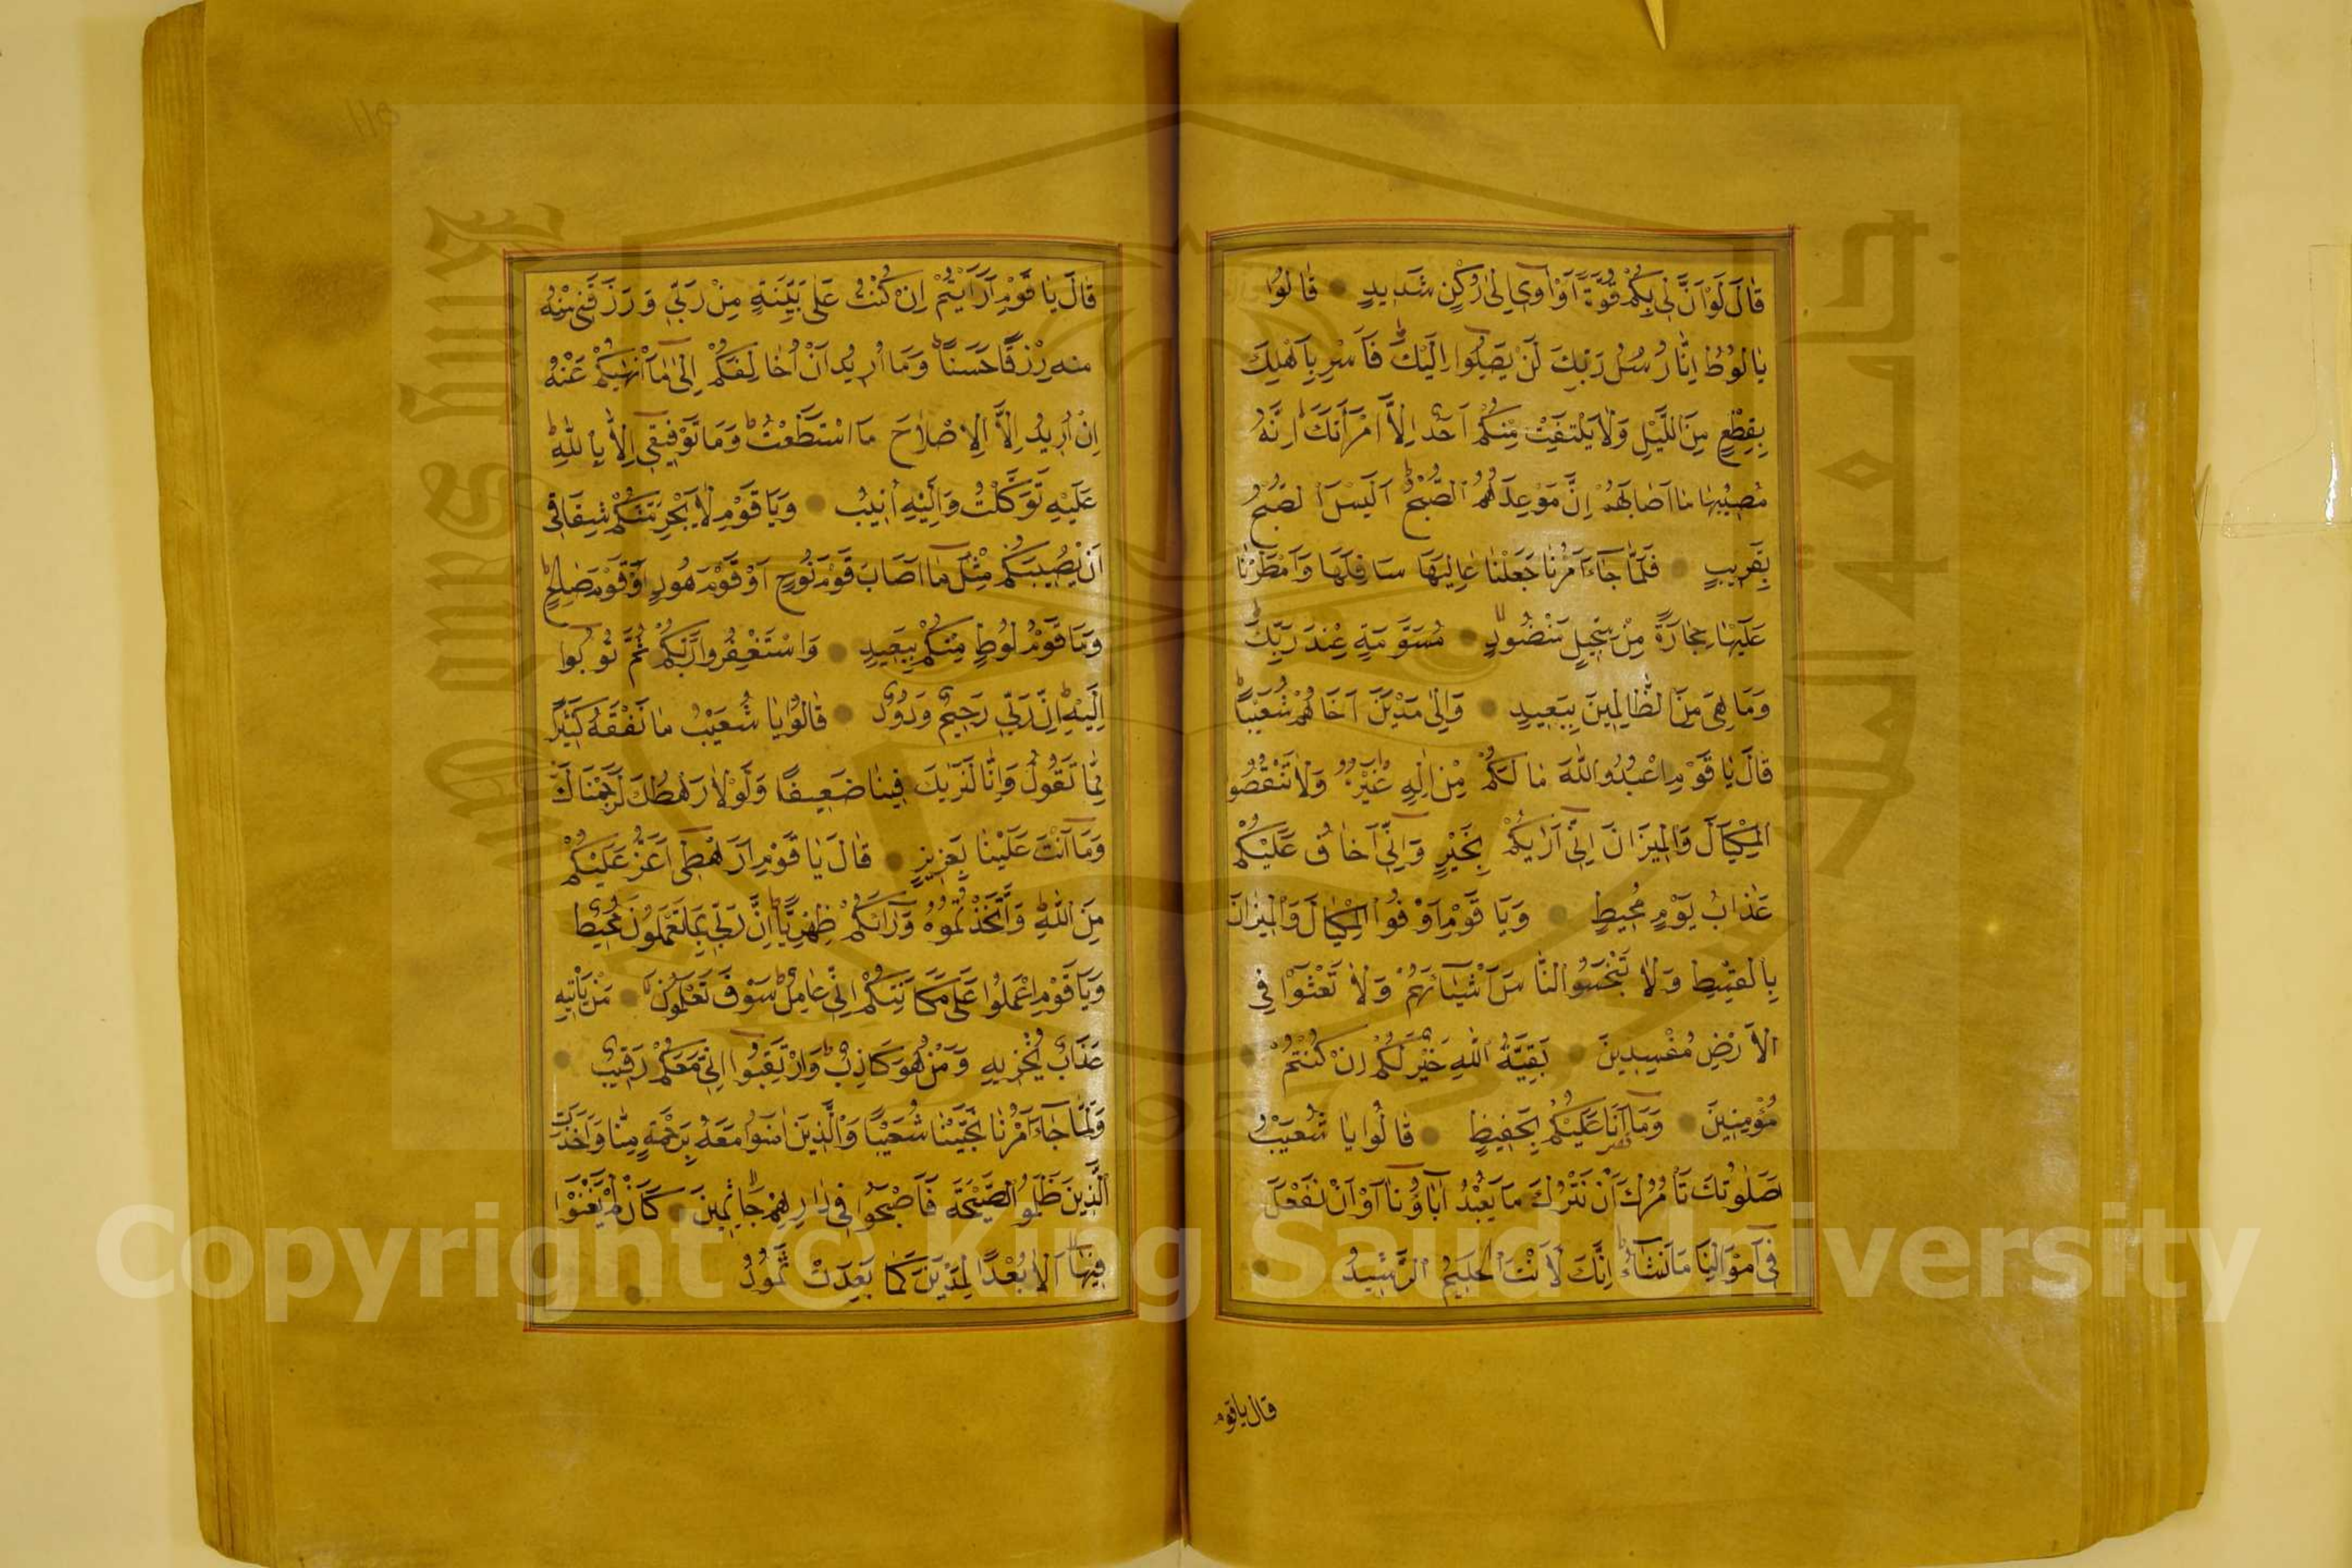 قَالَ لَوْ اَنَّ لِي بِكُمْ قُوَّةً اَوْ آوِي اِلىٰ رُكْنٍ شَدِيدٍ قَالُوا
يَا لُوطُ اِنَّا رُسُلُ رَبِّكَ لَنْ يَصِلُوا اِلَيْكَ فَاَسْرِ بِاَهْلِكَ
بِقِطْعٍ مِنَ اللَّيْلِ وَلَا يَلْتَفِتْ مِنْكُمْ اَحَدٌ اِلَّا امْرَاَتَكَ اِنَّهُ
مُصِيبُهَا مَا اَصَابَهُمْ اِنَّ مَوْعِدَهُمُ الصُّبْحُ اَلَيْسَ الصُّبْحُ
بِقَرِيبٍ فَلَمَّا جَاءَ اَمْرُنَا جَعَلْنَا عَالِيَهَا سَافِلَهَا وَاَمْطَرْنَا
عَلَيْهَا حِجَارَةً مِنْ سِجِّيلٍ مَنْضُودٍ مُسَوَّمَةً عِنْدَ رَبِّكَ
وَمَا هِيَ مِنَ الظَّالِمِينَ بِبَعِيدٍ وَاِلىٰ مَدْيَنَ اَخَاهُمْ شُعَيْبًا
قَالَ يَا قَوْمِ اعْبُدُوا اللّٰهَ مَا لَكُمْ مِنْ اِلٰهٍ غَيْرُهُ وَلَا تَنْقُصُوا
الْمِكْيَالَ وَالْمِيزَانَ اِنِّي اَرٰيكُمْ بِخَيْرٍ وَاِنِّي اَخَافُ عَلَيْكُمْ
عَذَابَ يَوْمٍ مُحِيطٍ وَيَا قَوْمِ اَوْفُوا الْمِكْيَالَ وَالْمِيزَانَ
بِالْقِسْطِ وَلَا تَبْخَسُوا النَّاسَ اَشْيَاءَهُمْ وَلَا تَعْثَوْا فِي
الْاَرْضِ مُفْسِدِينَ بَقِيَّةُ اللّٰهِ خَيْرٌ لَكُمْ اِنْ كُنْتُمْ
مُؤْمِنِينَ وَمَا اَنَا عَلَيْكُمْ بِحَفِيظٍ قَالُوا يَا شُعَيْبُ
صَلٰوتُكَ تَاْمُرُكَ اَنْ نَتْرُكَ مَا يَعْبُدُ آبَاؤُنَا اَوْ اَنْ نَفْعَلَ
فِي اَمْوَالِنَا مَا نَشَاءُ اِنَّكَ لَاَنْتَ الْحَلِيمُ الرَّشِيدُ
قال ياقوم
قَالَ يَا قَوْمِ اَرَاَيْتُمْ اِنْ كُنْتُ عَلىٰ بَيِّنَةٍ مِنْ رَبِّي وَرَزَقَنِي مِنْهُ
منه رِزْقًا حَسَنًا وَمَا اُرِيدُ اَنْ اُخَالِفَكُمْ اِلىٰ مَا اَنْهٰيكُمْ عَنْهُ
اِنْ اُرِيدُ اِلَّا الْاِصْلَاحَ مَا اسْتَطَعْتُ وَمَا تَوْفِيقِي اِلَّا بِاللّٰهِ
عَلَيْهِ تَوَكَّلْتُ وَاِلَيْهِ اُنِيبُ وَيَا قَوْمِ لَا يَجْرِمَنَّكُمْ شِقَاقِي
اَنْ يُصِيبَكُمْ مِثْلُ مَا اَصَابَ قَوْمَ نُوحٍ اَوْ قَوْمَ هُودٍ اَوْ قَوْمَ صَالِحٍ
وَمَا قَوْمُ لُوطٍ مِنْكُمْ بِبَعِيدٍ وَاسْتَغْفِرُوا رَبَّكُمْ ثُمَّ تُوبُوا
اِلَيْهِ اِنَّ رَبِّي رَحِيمٌ وَدُودٌ قَالُوا يَا شُعَيْبُ مَا نَفْقَهُ كَثِيرًا
مِمَّا تَقُولُ وَاِنَّا لَنَرٰيكَ فِينَا ضَعِيفًا وَلَوْلَا رَهْطُكَ لَرَجَمْنَاكَ
وَمَا اَنْتَ عَلَيْنَا بِعَزِيزٍ قَالَ يَا قَوْمِ اَرَهْطِي اَعَزُّ عَلَيْكُمْ
مِنَ اللّٰهِ وَاتَّخَذْتُمُوهُ وَرَاءَكُمْ ظِهْرِيًّا اِنَّ رَبِّي بِمَا تَعْمَلُونَ مُحِيطٌ
وَيَا قَوْمِ اعْمَلُوا عَلىٰ مَكَانَتِكُمْ اِنِّي عَامِلٌ سَوْفَ تَعْلَمُونَ مَنْ يَاْتِيهِ
عَذَابٌ يُخْزِيهِ وَمَنْ هُوَ كَاذِبٌ وَارْتَقِبُوا اِنِّي مَعَكُمْ رَقِيبٌ
وَلَمَّا جَاءَ اَمْرُنَا نَجَّيْنَا شُعَيْبًا وَالَّذِينَ اٰمَنُوا مَعَهُ بِرَحْمَةٍ مِنَّا وَاَخَذَتِ
الَّذِينَ ظَلَمُوا الصَّيْحَةُ فَاَصْبَحُوا فِي دَارِهِمْ جَاثِمِينَ كَاَنْ لَمْ يَغْنَوْا
فِيهَا اَلَا بُعْدًا لِمَدْيَنَ كَمَا بَعِدَتْ ثَمُودُ
Copyright © King Saud University